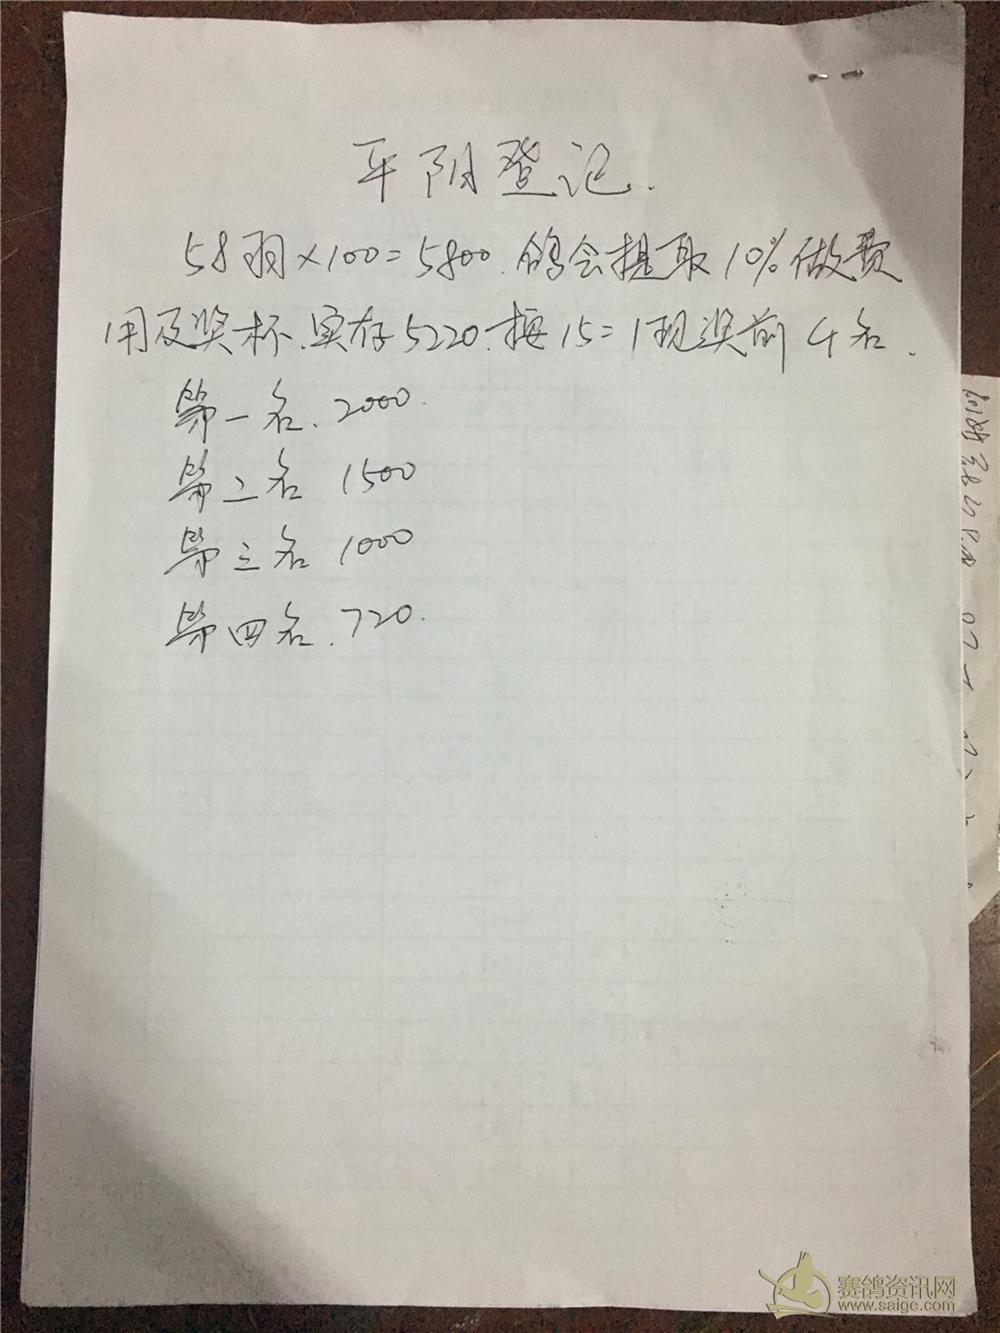 平阴登记.
58羽×100=5800.鸽会提取10%做费
用及奖杯.实存5220.按15=1现奖前4名.
第一名.2000.
第二名 1500
第三名 1000
第四名.720.
赛鸽资讯网
www.saige.com